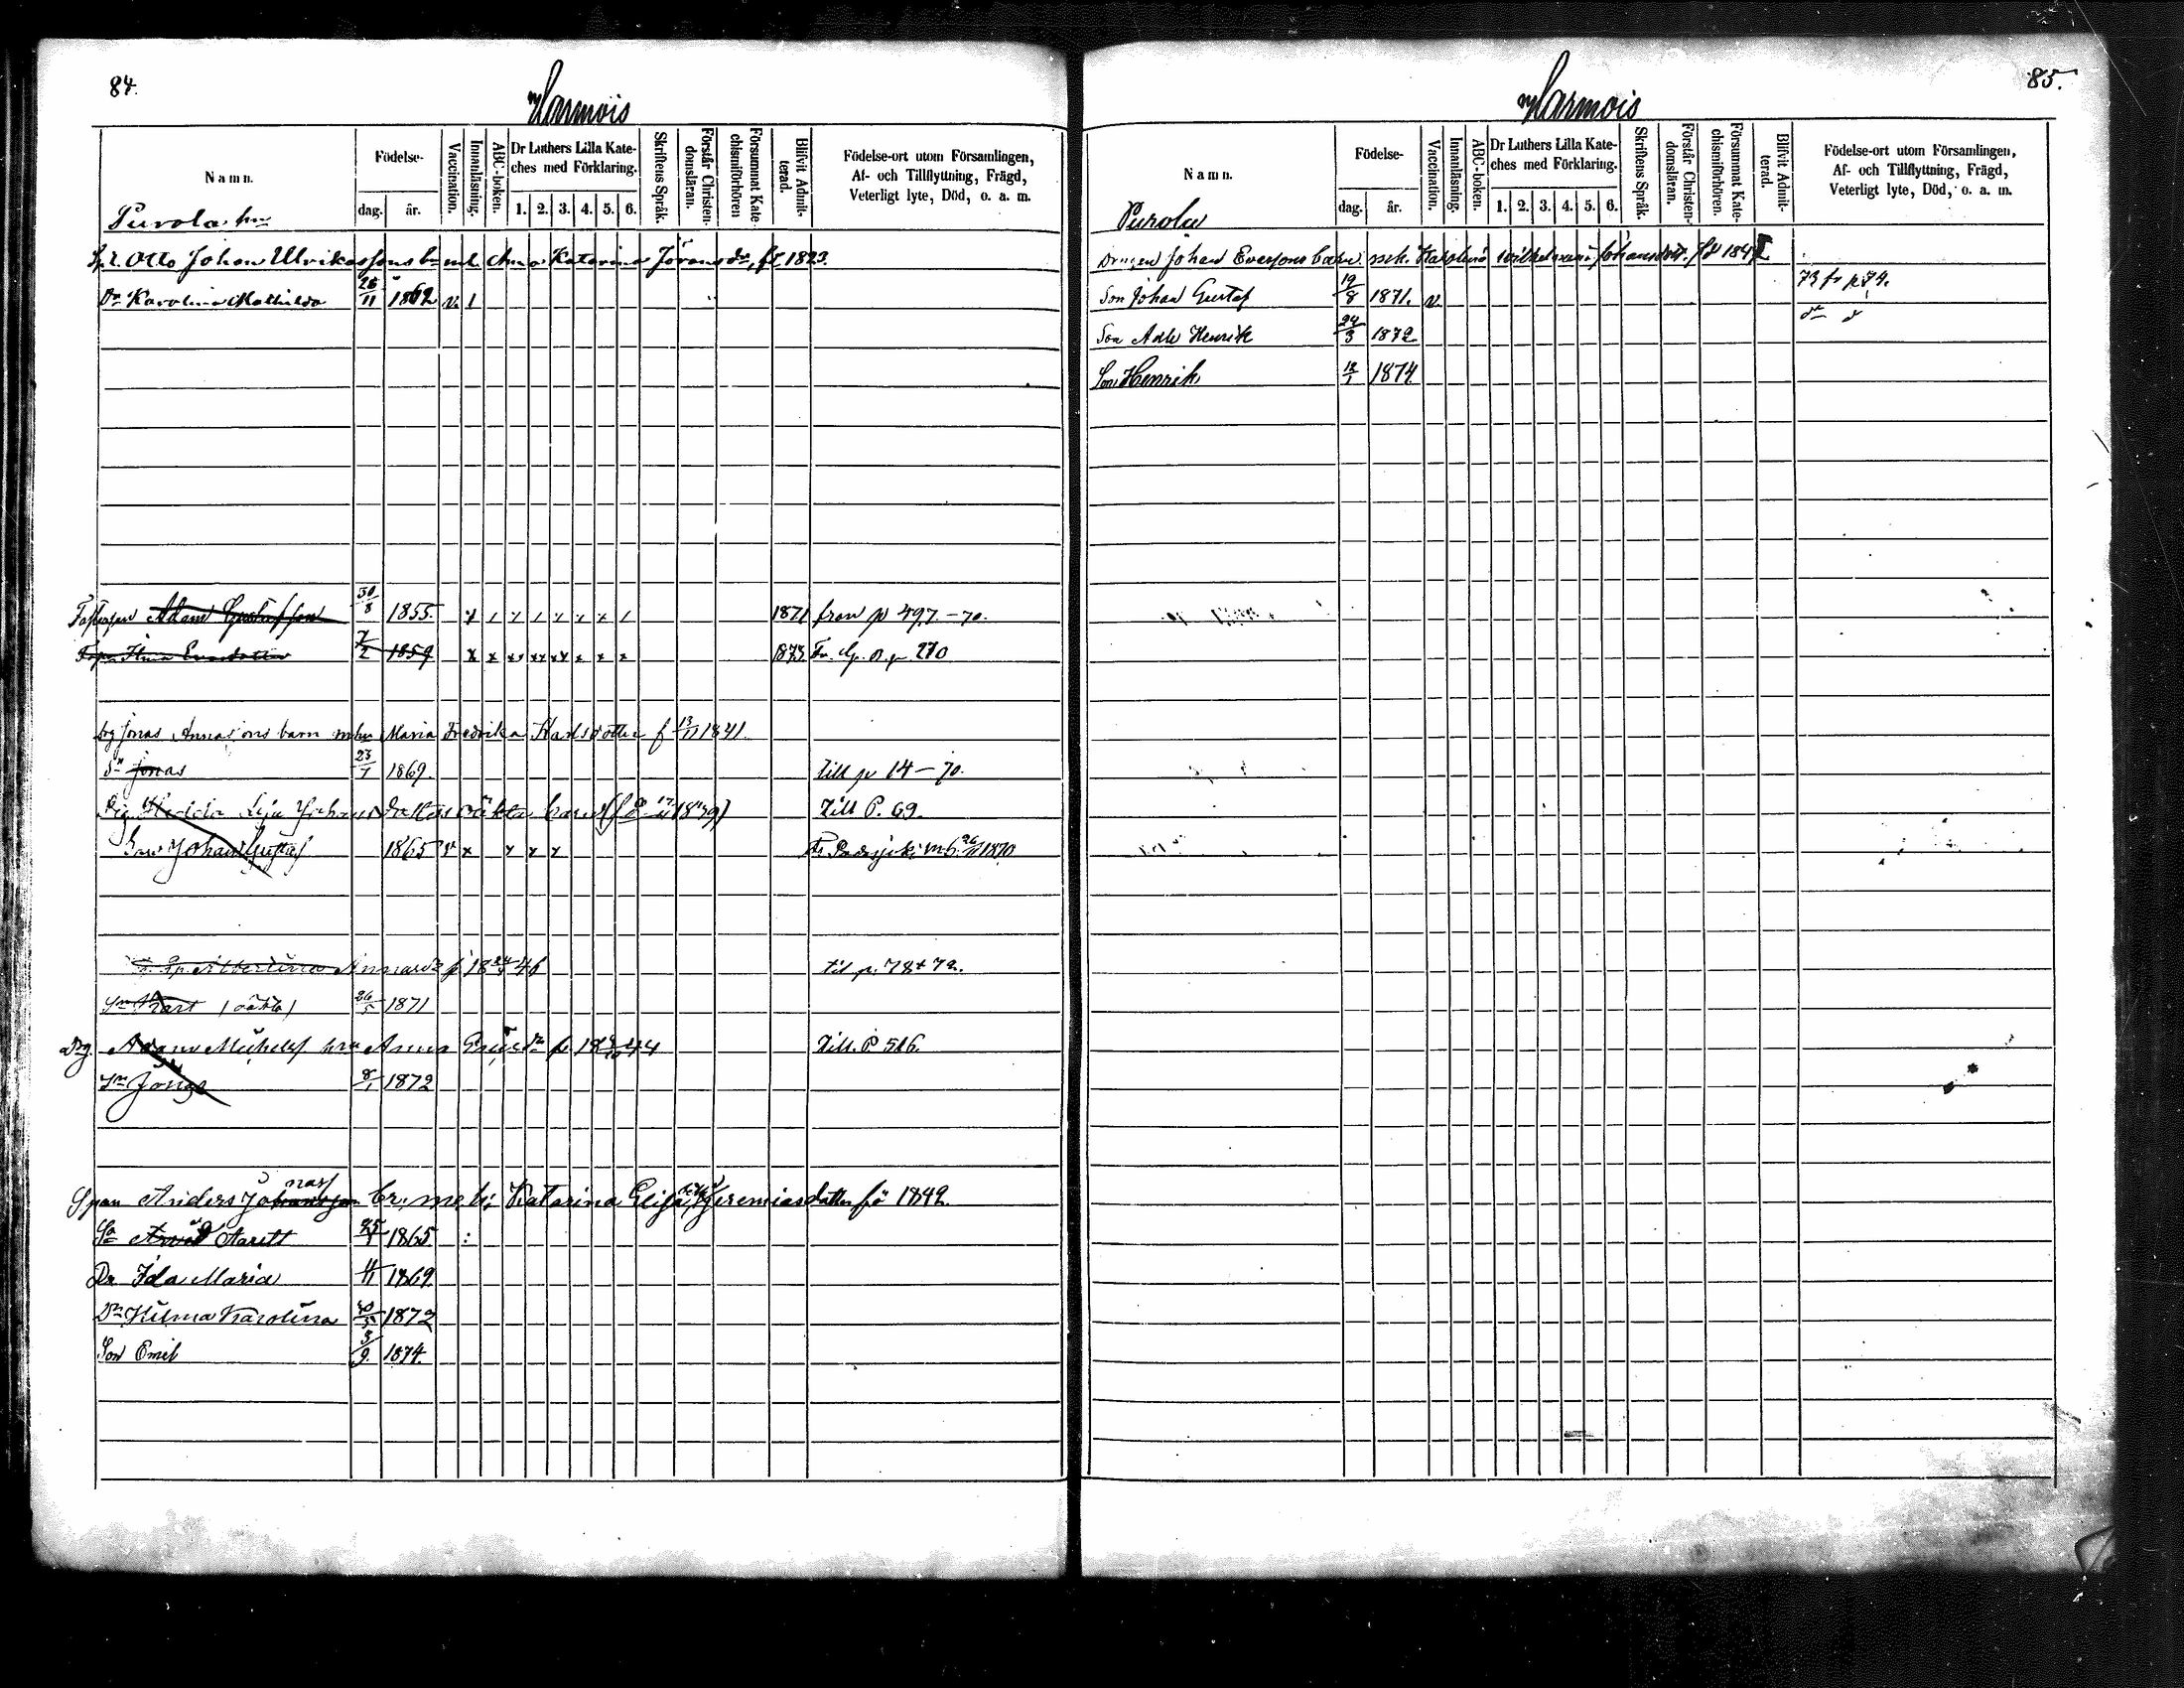 84.
Harmois
Namn.
Födelse-
dag. år.
Vaccination.
Innanläsning.
ABC-boken.
Dr Luthers Lilla Kate-
ches med Förklaring.
1. 2. 3. 4. 5. 6.
Skriftens Språk.
Förstår Christen-
domsläran.
Försummat Kate-
chismiförhören
Blifvit Admit-
terad.
Födelse-ort utom Församlingen,
Af- och Tillflyttning, Frägd,
Veterligt lyte, Död, o. a. m.
Purola
Otto Johan Ulrikassons bn m h Anna Katarina Jörans dr, f 1823.
Dr Karolina Mathilda 26/11 1862 v 1
Adam Gustafsson 30/8 1855. 1871 från p 497-70.
7/2 1859 x x xx xx xx x x x 1873 Fr. p 270
Drg Jonas Annasons barn mhu Maria Fredrika Karlsdotter f 13/11 1841
Sn Jonas 23/7 1869. till p 14-70.
Drg Hedda Johansdotters oäkta barn 1839) Till P. 69.
Son Johan Gustaf 1865 v x x x x Fr Padasjoki m b. 1870
Albertina Annasdr f 18 24/5 46 til p. 78 + 72.
Sn (oäkta) 26/5 1871
Drg. Adam Michels hru Anna f. 44 Till. P 516.
Sn Jonas 8/1 1872
Span Anders Johansson nass br. me h: Katarina Elisa Jeremiasdotter fö 1842
Sn Arvid Aarett 25/1 1865 :
Dr Ida Maria 11/11 1869
Dr Hilma Karolina 30/5 1872
Son Emil 3/9 1874.
85.
Harmois
Namn.
Födelse-
dag. år.
Vaccination.
Innanläsning.
ABC-boken.
Dr Luthers Lilla Kate-
ches med Förklaring.
1. 2. 3. 4. 5. 6.
Skriftens Språk.
Förstår Christen-
domsläran.
Försummat Kate-
chismiförhören.
Blifvit Admit-
terad.
Födelse-ort utom Församlingen,
Af- och Tillflyttning, Frägd,
Veterligt lyte, Död, o. a. m.
Purola
Drngen Johan Evasons barn m h. Karolina Wilhelmina Johansdott. föd 184
Son Johan Gustaf 19/8 1871. v 73 fr p 74.
Son Adle Henrik 24/3 1872
Son Henrik 12/1 1874